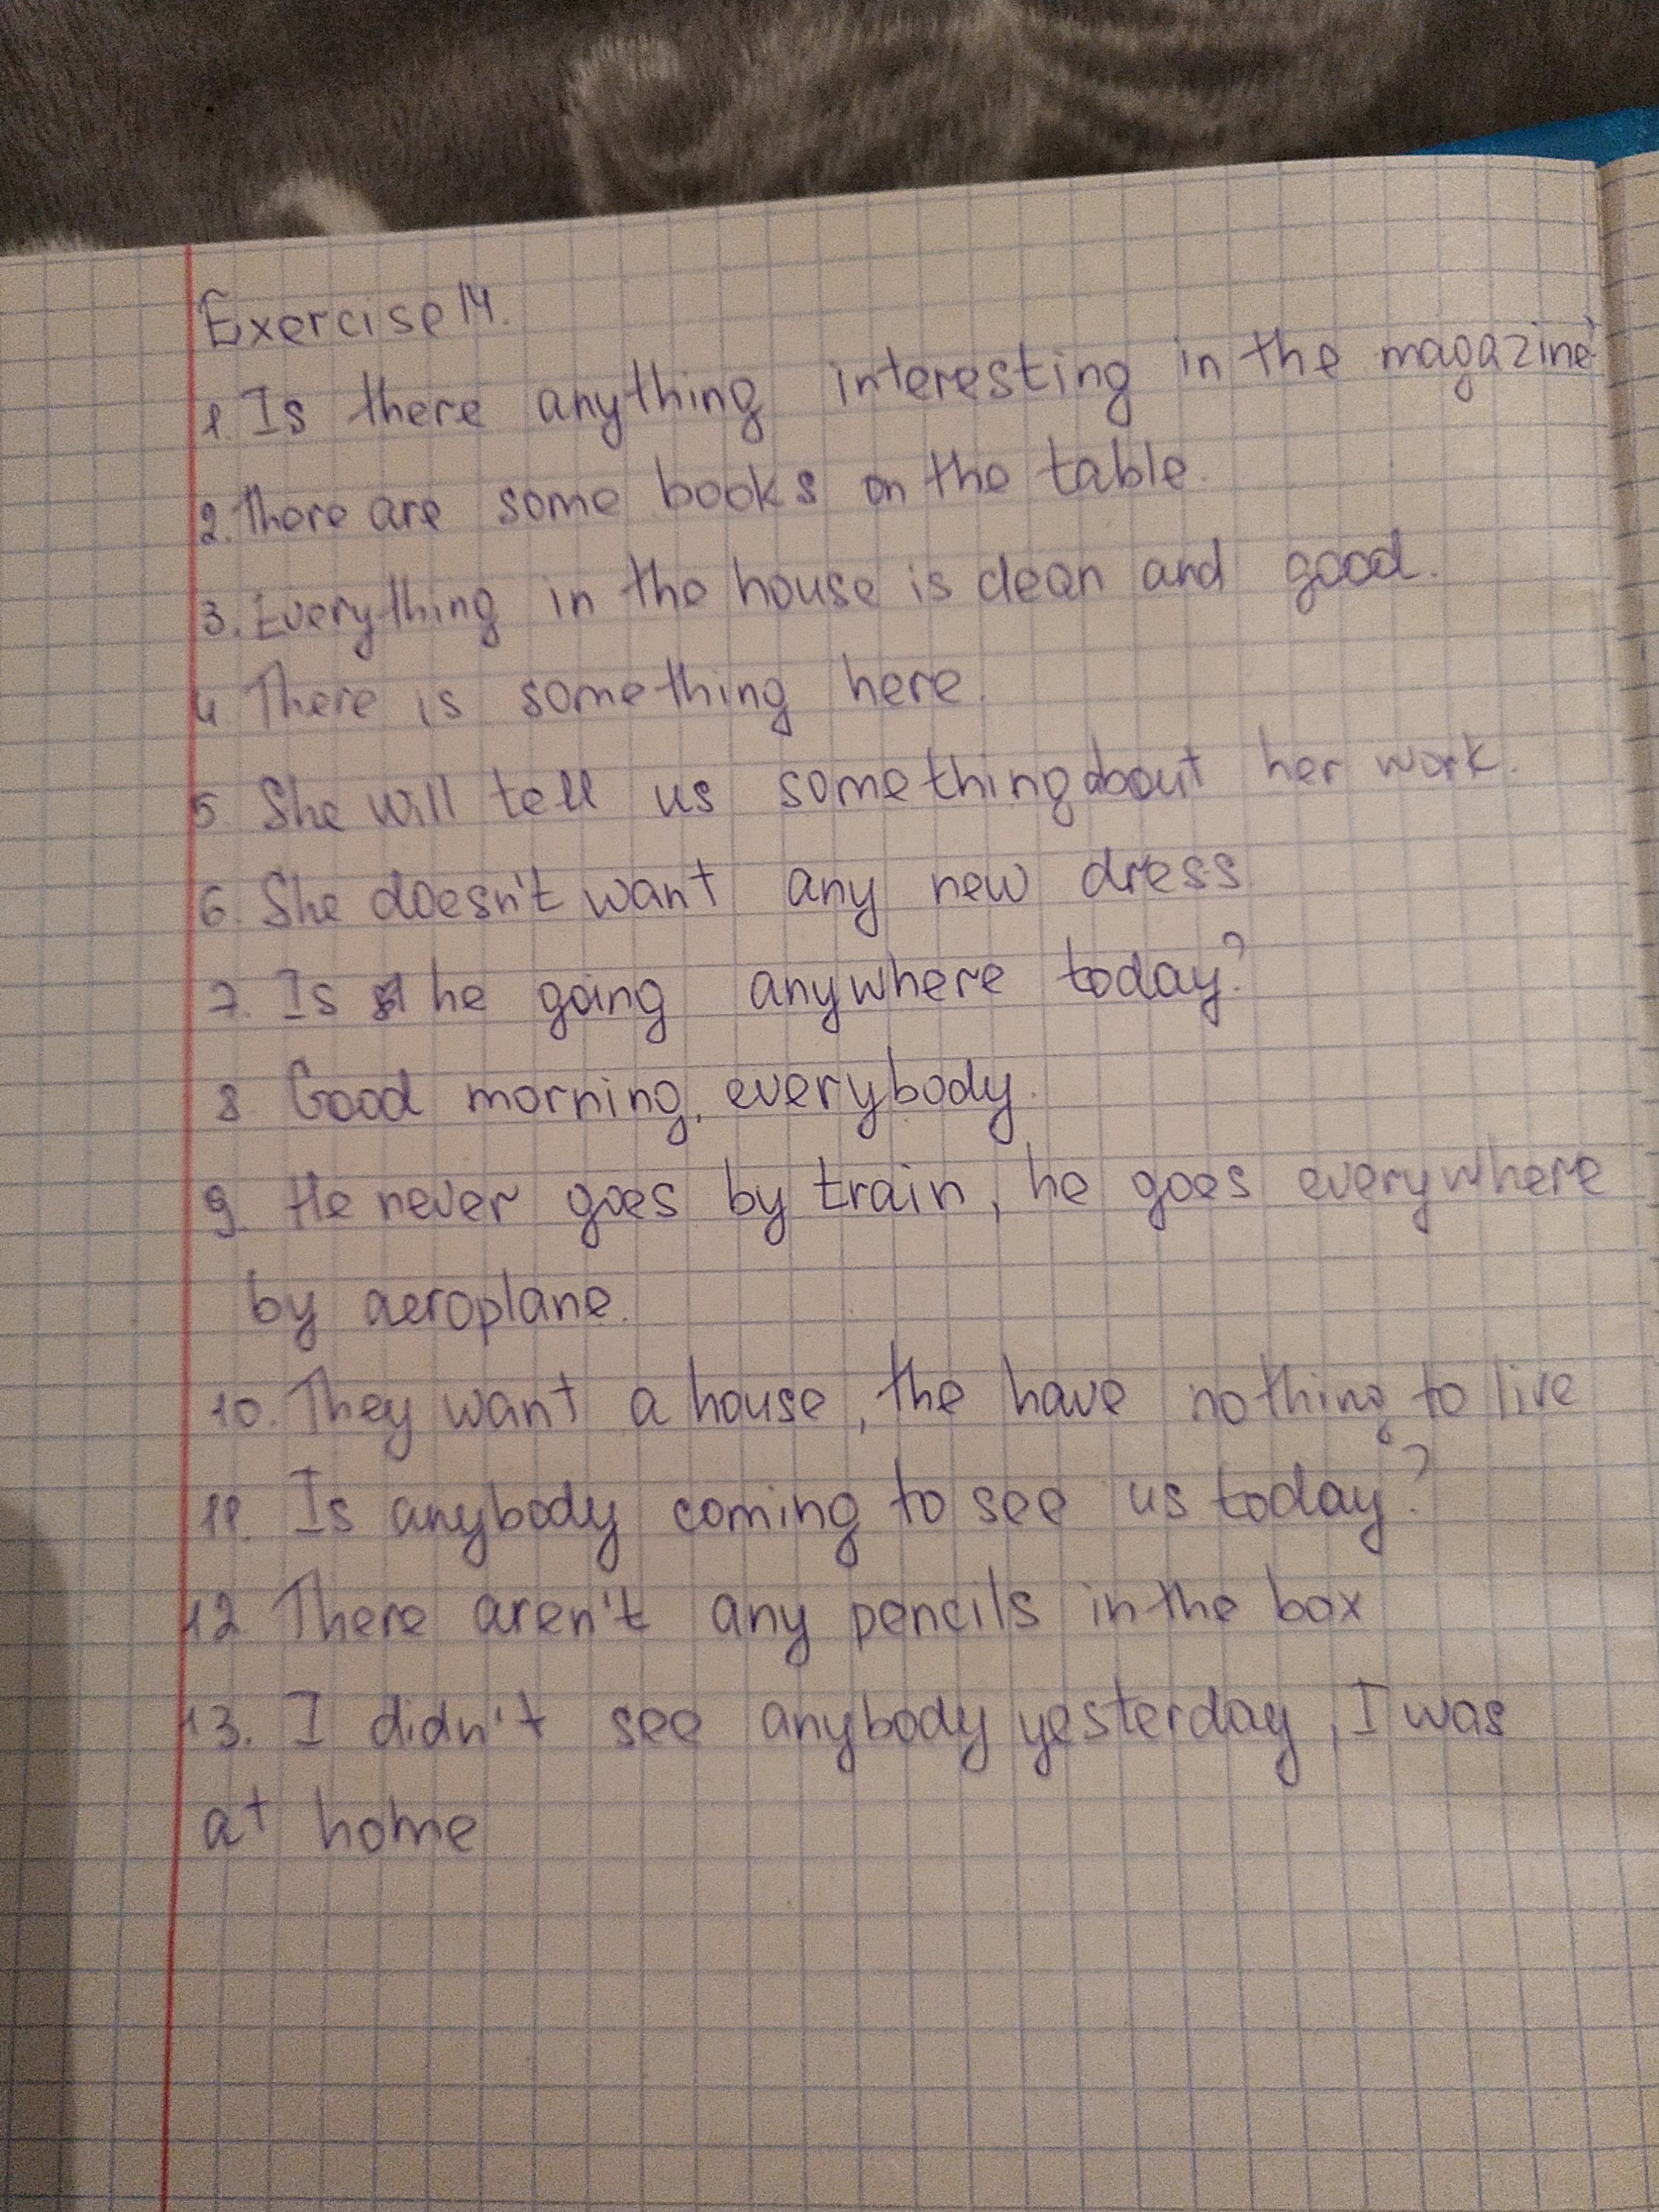 Exercise 14.
1. Is there anything interesting in the magazine?
2. There are some books on the table.
3. Everything in the house is clean and good.
4 There is something here.
5 She will tell us something about her work.
6. She doesn't want any new dress.
7. Is he going anywhere today?
8 Good morning, everybody.
9. He never goes by train, he goes everywhere
by aeroplane.
10. They want a house, the have nothing to live
11. Is anybody coming to see us today?
12 There aren't any pencils in the box
13. I didn't see anybody yesterday, I was
at home